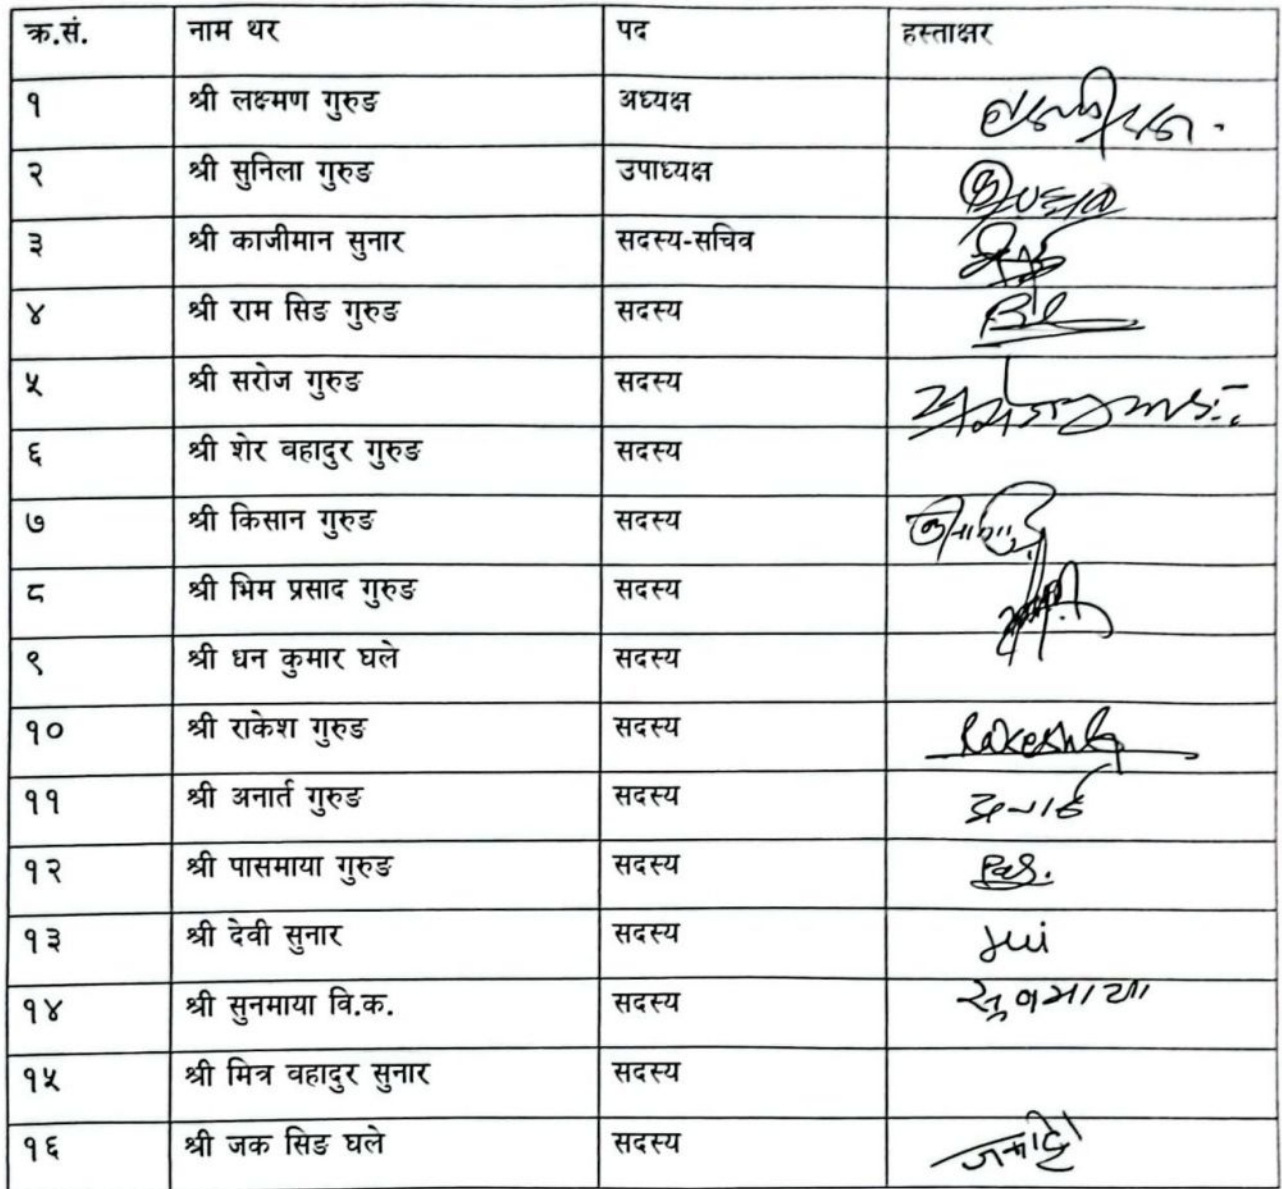 क्र.सं. नाम थर पद हस्ताक्षर
१ श्री लक्ष्मण गुरुङ अध्यक्ष
२ श्री सुनिला गुरुङ उपाध्यक्ष
३ श्री काजीमान सुनार सदस्य-सचिव
४ श्री राम सिङ गुरुङ सदस्य
५ श्री सरोज गुरुङ सदस्य
६ श्री शेर वहादुर गुरुङ सदस्य
७ श्री किसान गुरुङ सदस्य
८ श्री भिम प्रसाद गुरुङ सदस्य
९ श्री धन कुमार घले सदस्य
१० श्री राकेश गुरुङ सदस्य
११ श्री अनार्त गुरुङ सदस्य
१२ श्री पासमाया गुरुङ सदस्य Pas.
१३ श्री देवी सुनार सदस्य
१४ श्री सुनमाया वि.क. सदस्य सुनमाया
१५ श्री मित्र वहादुर सुनार सदस्य
१६ श्री जक सिङ घले सदस्य